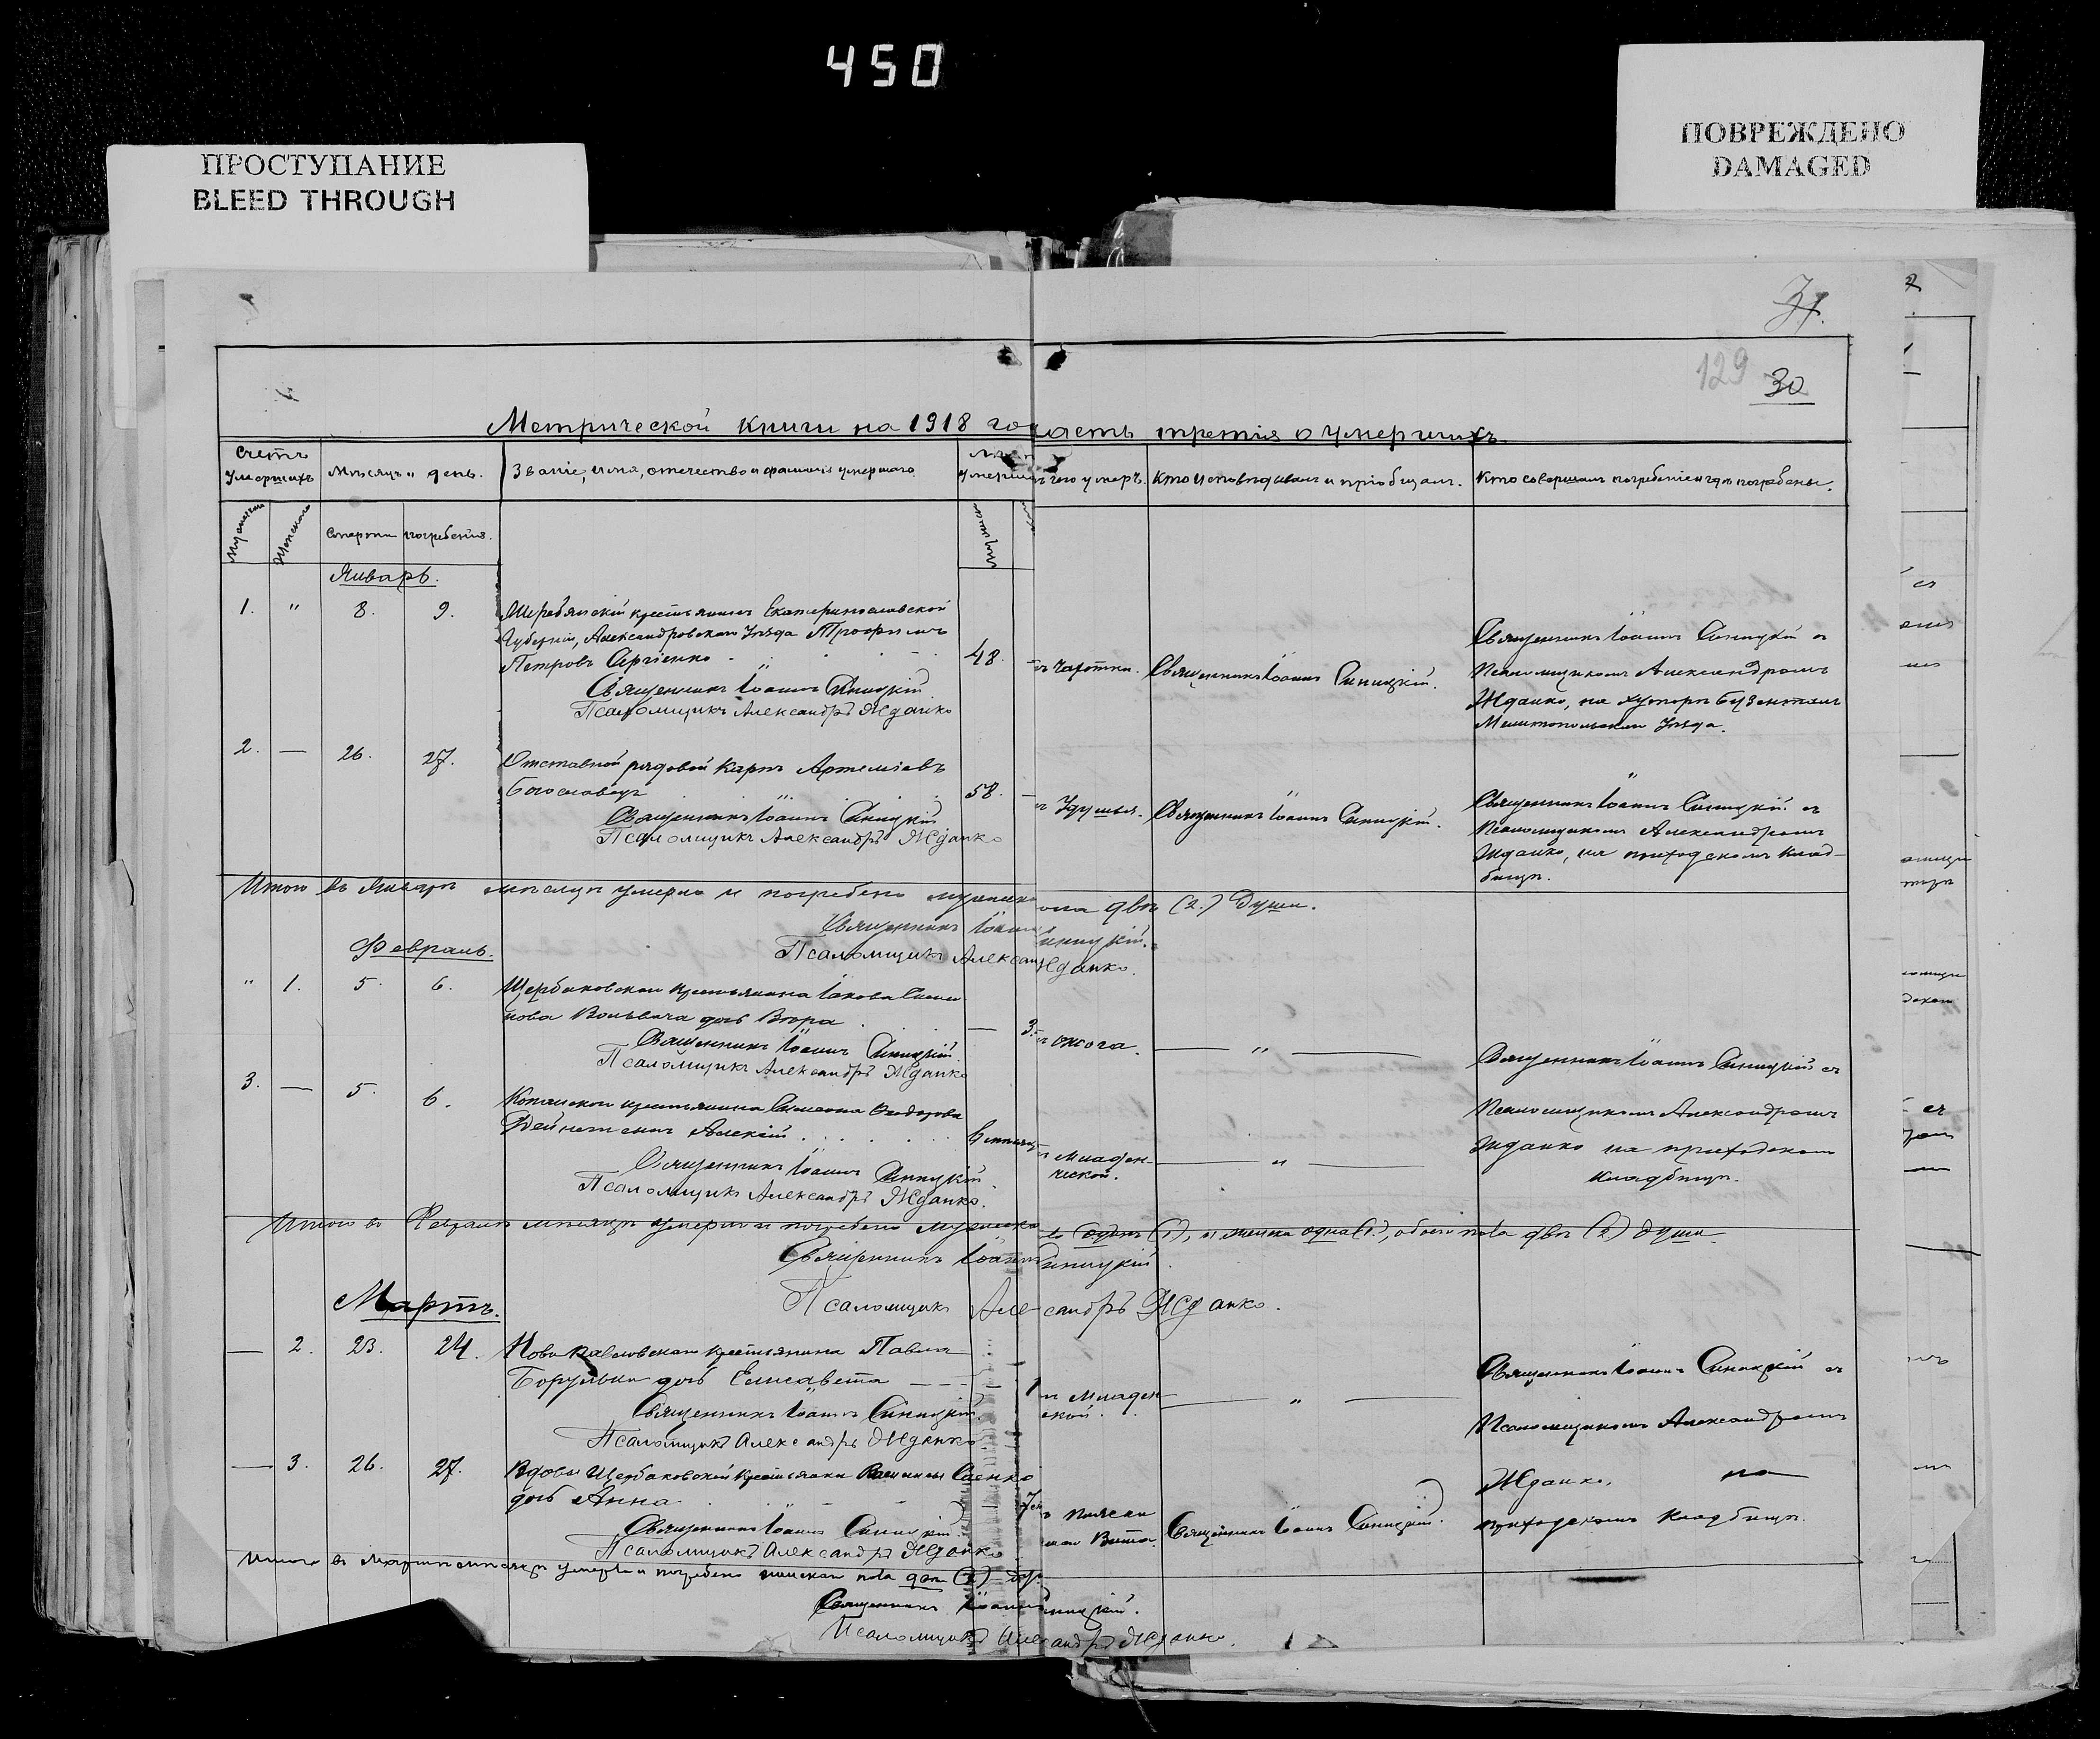 450
ПРОСТУПАНИЕ
BLEED THROUGH
ПОВРЕЖДЕНО
DAMAGED
31.
129 30
Метрической книги на 1918 го часть третія о умершихъ
Счетъ умершихъ
Мѣсяцъ и день.
Званіе, имя, отчество и фамилія умершаго.
чего умеръ.
Кто исповѣдывалъ и пріобщалъ.
Кто совершалъ погребеніе и гдѣ погребены.
Мужескаго
Женскаго
Смерти
погребенія.
Январь.
1. " 8. 9.
крестьянинъ Екатеринославской
Губерніи, Александровскаго Уѣзда Трофимъ
Петровъ Сергіенко 48.
чахотки.
Священникъ Іоаннъ Синицкій.
Священникъ Іоаннъ Синицкій съ
Псаломщикомъ Александромъ
Жданко, на хуторѣ
Мелитопольскаго Уѣзда.
Священникъ Іоаннъ Синицкій
Псаломщикъ Александръ Жданко
2. — 26. 27.
Отставной рядовой Карпъ Артеміевъ
Богославецъ 58.
Удушья.
Священникъ Іоаннъ Синицкій.
Священникъ Іоаннъ Синицкій съ
Псаломщикомъ Александромъ
Жданко, на приходскомъ клад-
бищѣ.
Священникъ Іоаннъ Синицкій
Псаломщикъ Александръ Жданко
Итого въ Январѣ мѣсяцѣ умерло и погребено мужеска пола двѣ (2.) души.
Священникъ Іоаннъ Синицкій.
Псаломщикъ Александръ Жданко.
Февраль.
" 1. 5. 6.
Щербаковскаго крестьянина Іакова Симео
нова Вольвача дочь Вѣра — 3.
ожога.
— " —
Священникъ Іоаннъ Синицкій
Псаломщикъ Александръ Жданко
Священникъ Іоаннъ Синицкій съ
Псаломщикомъ Александромъ
Жданко на приходскомъ
кладбищѣ.
3. — 5. 6.
крестьянина Симеона Ѳеодорова
сынъ Алексій 6 мѣсяц
младен-
ческой.
— " —
Священникъ Іоаннъ Синицкій.
Псаломщикъ Александръ Жданко.
Итого въ Февралѣ мѣсяцѣ умерло и погребено мужеска одинъ (1), и женска одна (1.), обоего пола двѣ (2) души
Священникъ Іоаннъ Синицкій
Псаломщикъ Александръ Жданко.
Мартъ.
— 2. 23. 24.
Новопавловскаго крестьянина Павла
Борулька дочь Елисавета 1
младен
ской.
— " —
Священникъ Іоаннъ Синицкій.
Псаломщикъ Александръ Жданко.
Священникъ Іоаннъ Синицкій съ
Псаломщикомъ Александромъ
Жданко, на
приходскомъ кладбищѣ.
— 3. 26. 27.
Вдовы Щербаковской крестьянки Саенко
дочь Анна 7
пляски
Витта.
Священникъ Іоаннъ Синицкій.
Священникъ Іоаннъ Синицкій.
Псаломщикъ Александръ Жданко
Итого въ Мартѣ мѣсяцѣ умерло и погребено женскаго пола двѣ (2) душ.
Священникъ Іоаннъ Синицкій.
Псаломщикъ Александръ Жданко.